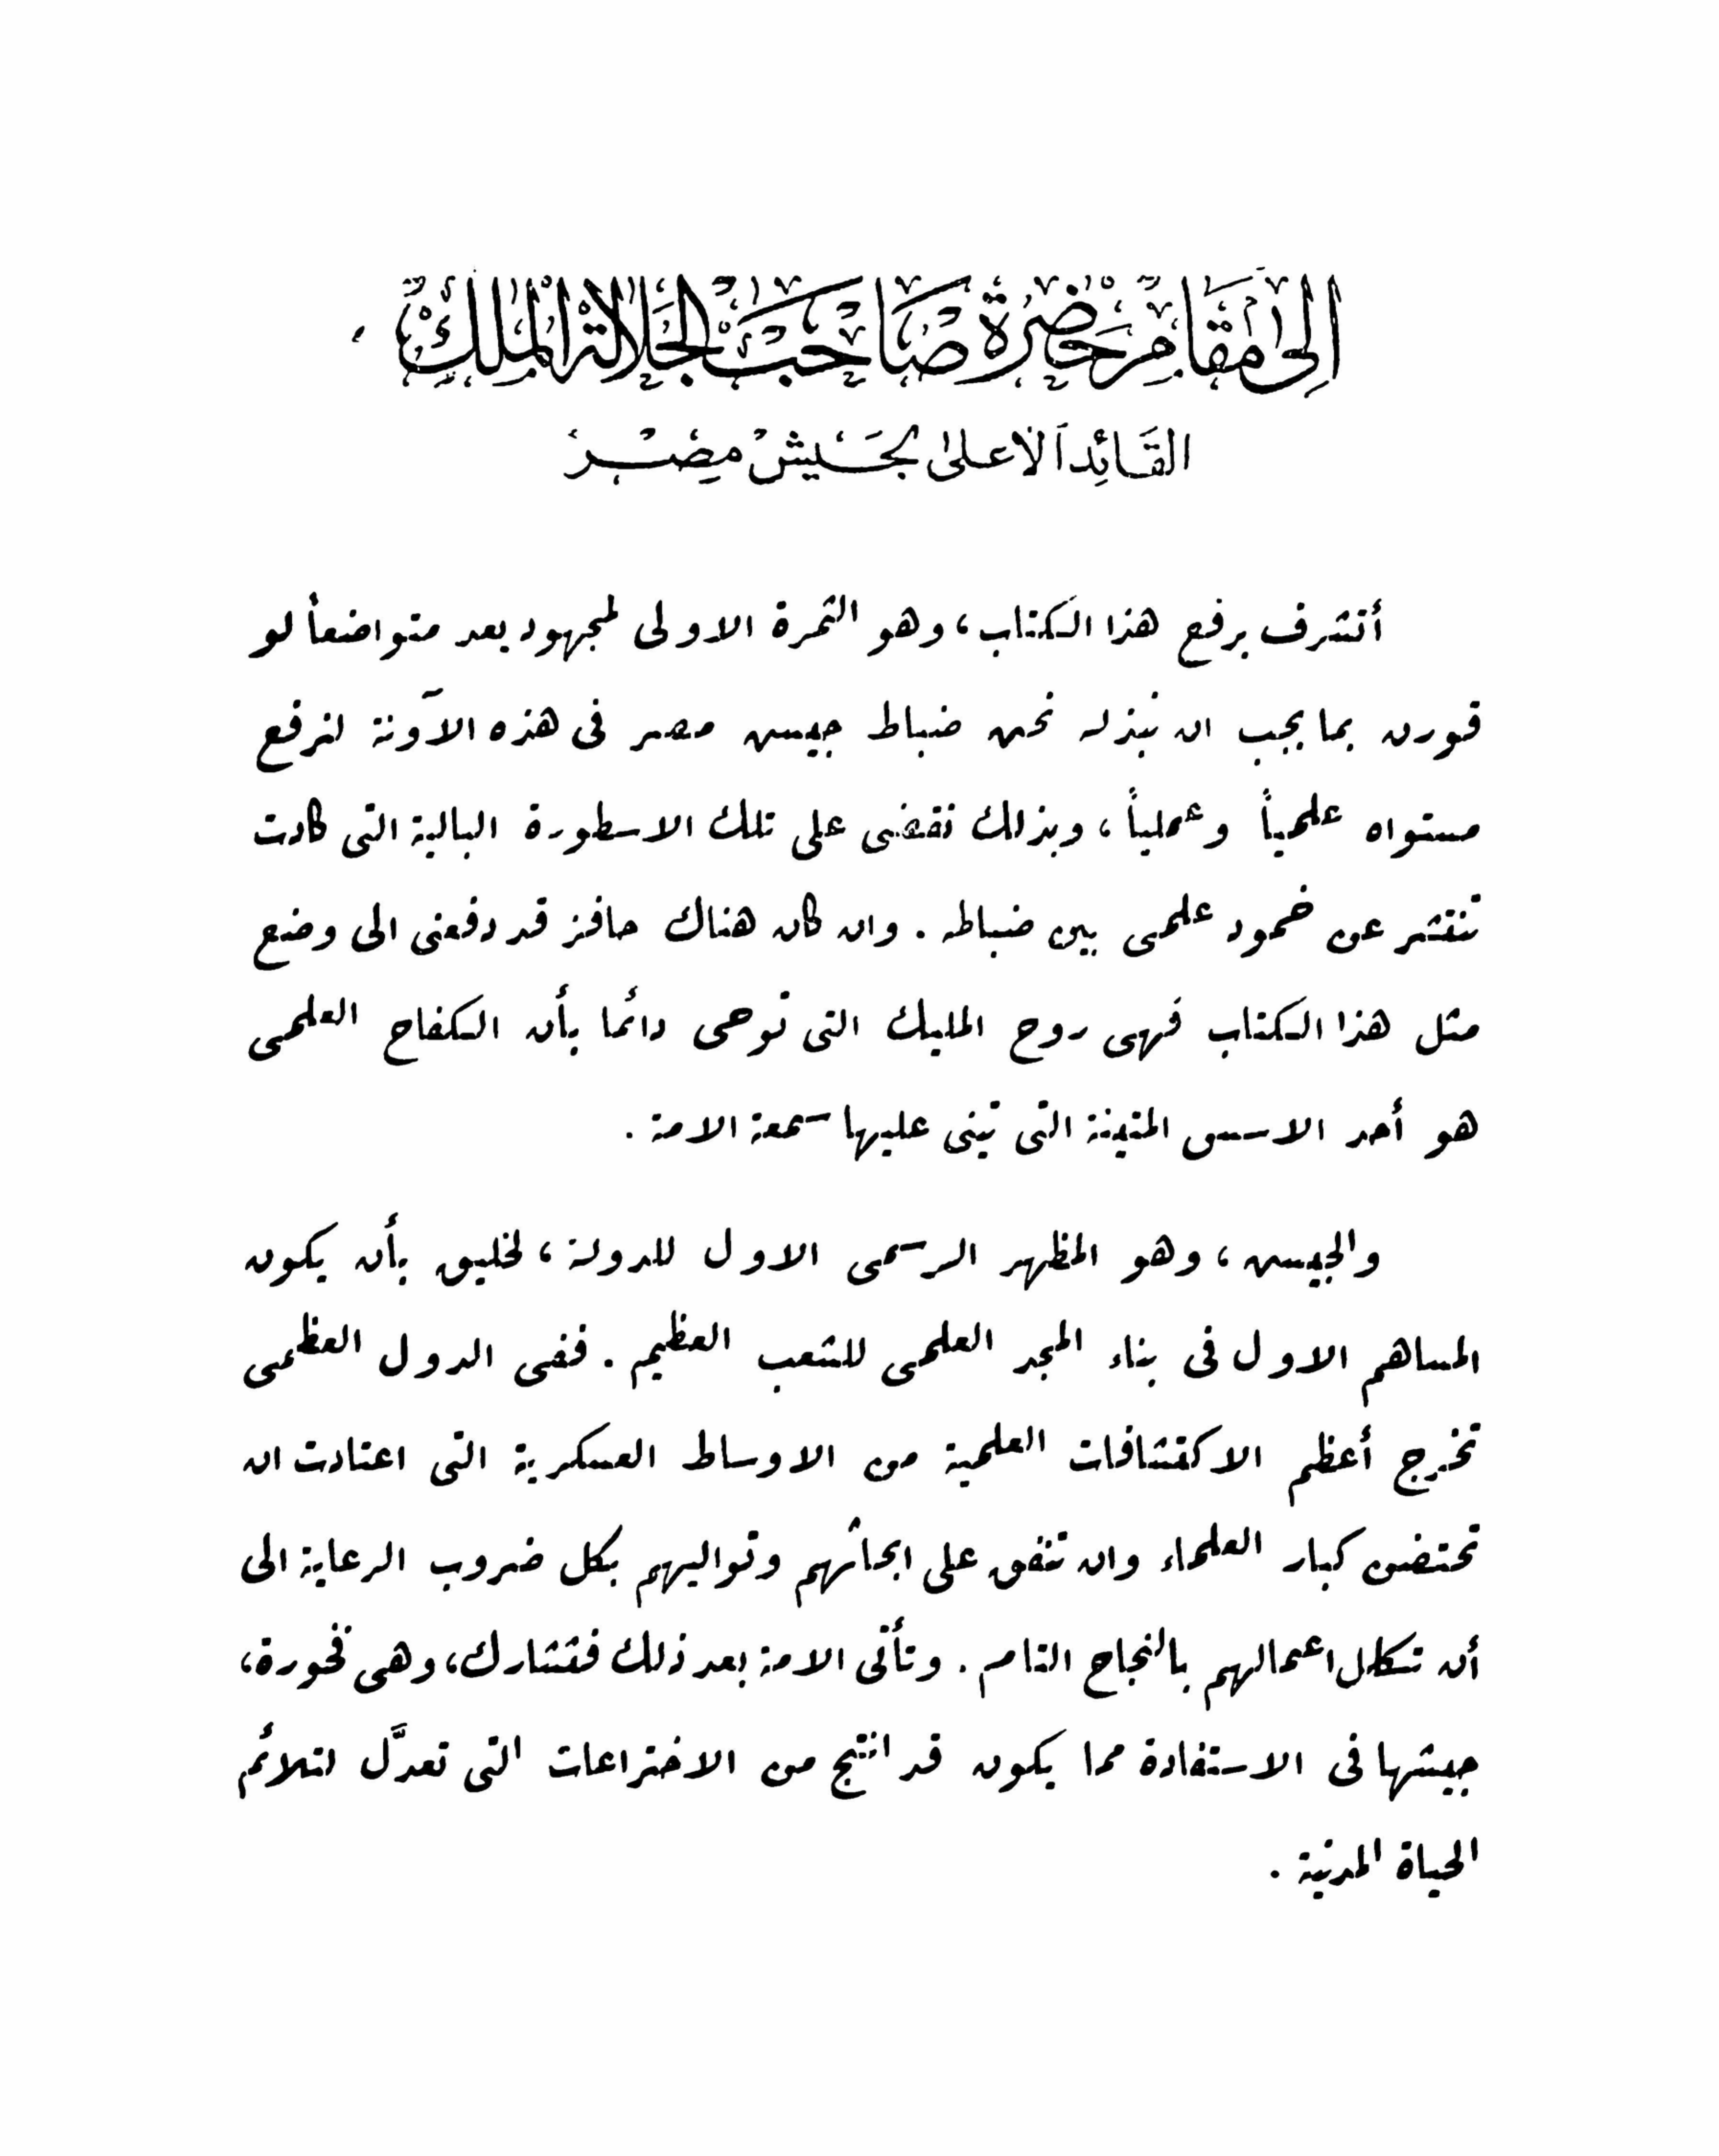 إلى مقام حضرة صاحب الجلالة الملك ،
القائد الأعلى لجيش مصر
أتشرف برفع هذا الكتاب، وهو الثمرة الاولى لمجهود يعد متواضعاً لو
قورن بما يجب ان نبذله نحن ضباط جيش مصر فى هذه الآونة لنرفع
مستواه علمياً وعملياً، وبذلك نقضى على تلك الاسطورة البالية التى كادت
تنتشر عن خمود علمى بين ضباطه . وان كان هناك حافز قد دفعنى الى وضع
مثل هذا الكتاب فهى روح المليك التى توحى دائما بأن الكفاح العلمى
هو أحد الاسس المتينة التى تبنى عليها سمعة الامة .
والجيش ، وهو المظهر الرسمى الاول للدولة ، لخليق بأن يكون
المساهم الاول فى بناء المجد العلمى للشعب العظيم . ففى الدول العظمى
تخرج أعظم الاكتشافات العلمية من الاوساط العسكرية التى اعتادت ان
تحتضن كبار العلماء وان تنفق على ابحاثهم وتواليهم بكل ضروب الرعاية الى
أن تكلل اعمالهم بالنجاح التام . وتأتى الامة بعد ذلك فتشارك، وهى فخورة،
جيشها فى الاستفادة مما يكون قد انتج من الاختراعات التى تعدَّل لتلائم
الحياة المدنية .